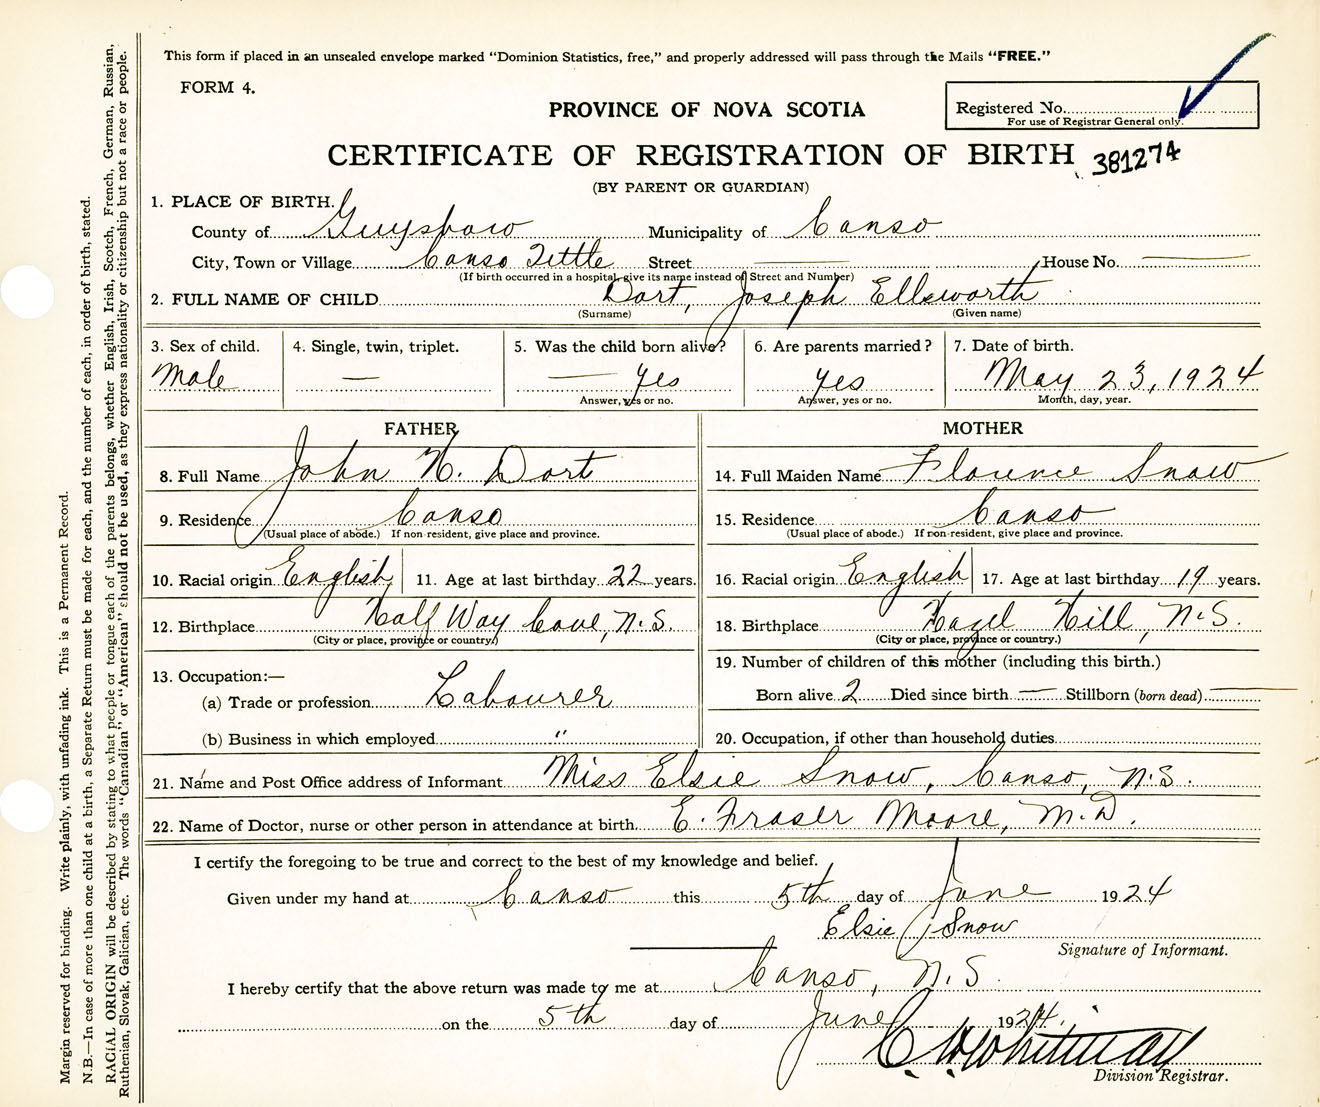 This form if placed in an unsealed envelope marked "Dominion Statistics, free," and properly addressed will pass through the Mails "FREE."
FORM 4.
PROVINCE OF NOVA SCOTIA
Registered No.
For use of Registrar General only.
CERTIFICATE OF REGISTRATION OF BIRTH
381274
(BY PARENT OR GUARDIAN)
1. PLACE OF BIRTH.
County of Guysboro Municipality of Canso
City, Town or Village Canso Tittle Street — House No. —
(If birth occurred in a hospital, give its name instead of Street and Number)
2. FULL NAME OF CHILD Dort, Joseph Ellsworth
(Surname) (Given name)
3. Sex of child. 4. Single, twin, triplet. 5. Was the child born alive? 6. Are parents married? 7. Date of birth.
Male — — yes yes May 23, 1924
Answer, yes or no. Answer, yes or no. Month, day, year.
FATHER MOTHER
8. Full Name John H. Dort 14. Full Maiden Name Florence Snow
9. Residence Canso 15. Residence Canso
(Usual place of abode.) If non-resident, give place and province. (Usual place of abode.) If non-resident, give place and province.
10. Racial origin English 11. Age at last birthday 22 years. 16. Racial origin English 17. Age at last birthday 19 years.
12. Birthplace Half Way Cove, N.S. 18. Birthplace Hazel Hill, N.S.
(City or place, province or country.) (City or place, province or country.)
13. Occupation:— 19. Number of children of this mother (including this birth.)
(a) Trade or profession Labourer Born alive 2 Died since birth — Stillborn (born dead) —
(b) Business in which employed " 20. Occupation, if other than household duties
21. Name and Post Office address of Informant Miss Elsie Snow, Canso, N.S.
22. Name of Doctor, nurse or other person in attendance at birth. E. Fraser Moore, M.D.
I certify the foregoing to be true and correct to the best of my knowledge and belief.
Given under my hand at Canso this 5th day of June 1924
Elsie Snow
Signature of Informant.
I hereby certify that the above return was made to me at Canso, N.S.
on the 5th day of June 1924.
C. W. Whitman
Division Registrar.
Margin reserved for binding. Write plainly, with unfading ink. This is a Permanent Record.
N.B.—In case of more than one child at a birth, a Separate Return must be made for each, and the number of each, in order of birth, stated.
RACIAL ORIGIN will be described by stating to what people or tongue each of the parents belongs, whether English, Irish, Scotch, French, German, Russian,
Ruthenian, Slovak, Galician, etc. The words "Canadian" or "American" should not be used, as they express nationality or citizenship but not a race or people.